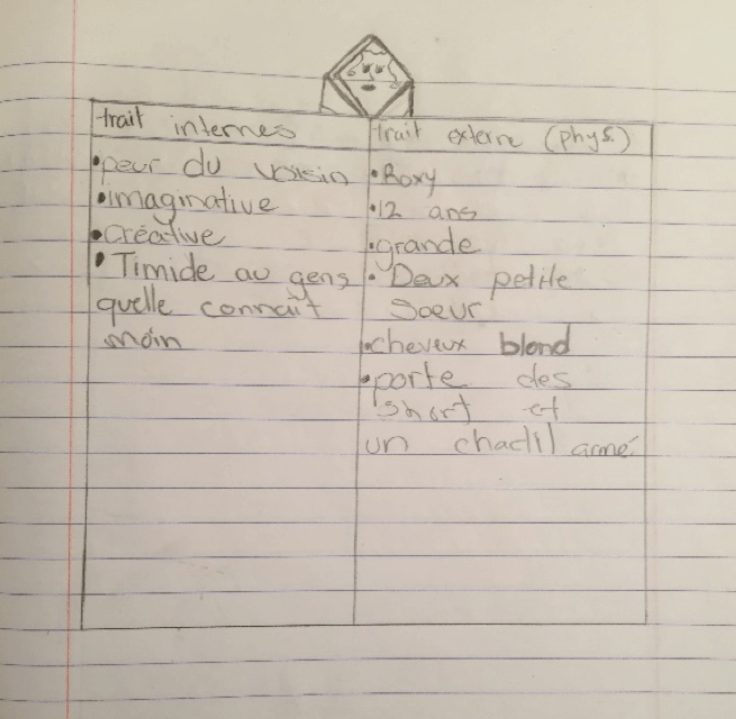 trait internes
•peur du voisin
•imaginative
•créative
• Timide au gens
quelle connaît
moin
trait externe (phys.)
•Roxy
•12 ans
•grande
• Deux petite
soeur
•cheveux blond
•porte des
short et
un